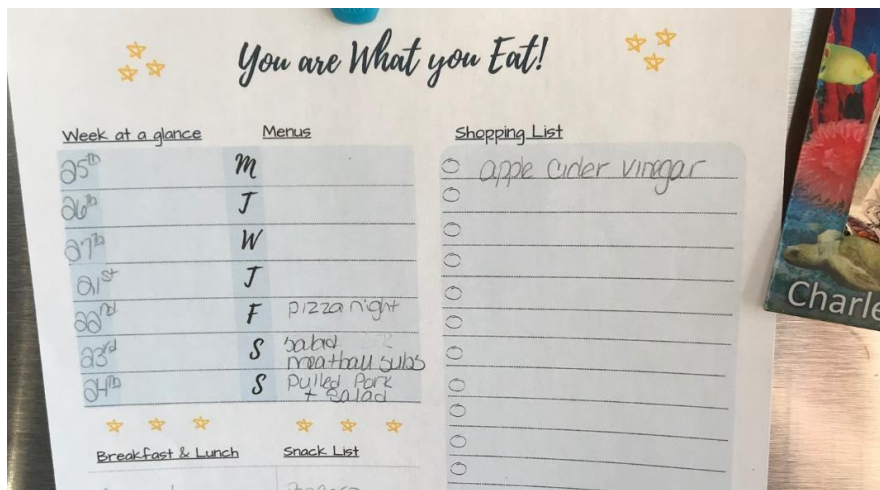 You are What you Eat!
Week at a glance
Menus
Shopping List
25th M
26th T
27th W
21st T
22nd F pizza night
23rd S salad
meatball subs
24th S Pulled Pork
+ salad
apple cider vinegar
Breakfast & Lunch
Snack List
Charle